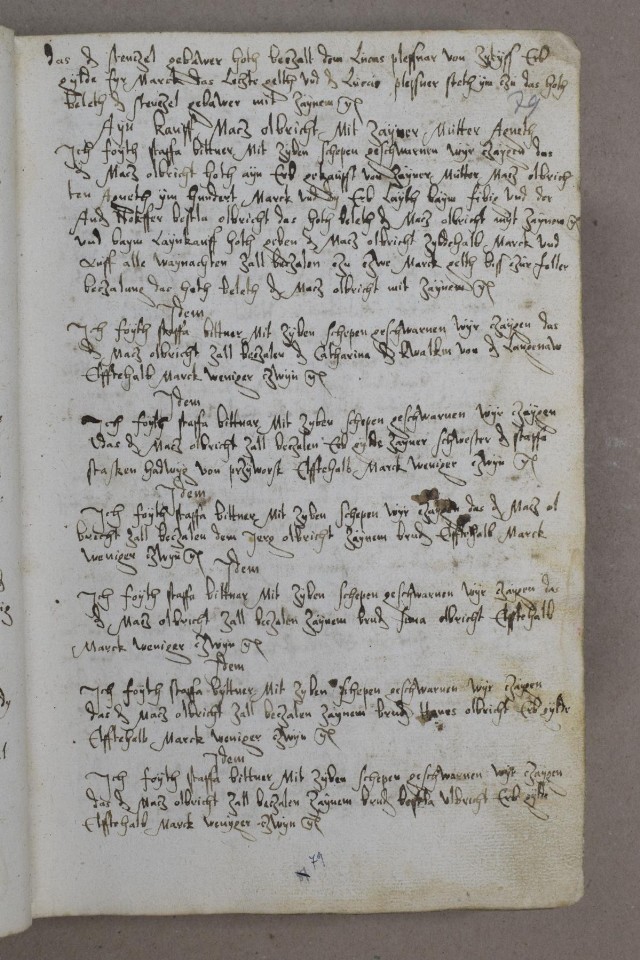 das d stenczel gebawer hoth beczalt dem Lucas plessnar von Erb
gylde fyr Marck das Leczte gelth vnd d Lucas plessner steth ym czu das hoth
beleth d stenczel gebawer mit zaynem gl
79
Ayn kauff Macz olbricht Mit zayner Mutter Agneth
Ich foyth staffa bittner Mit zyben schepen geschwarnen wyr czaygen das
d Macz olbricht hoth ayn Erb gekaufft von zayner Mutter Macz olbrich
ten Agneth ym hundert Marck vnd dy Erb Leyth baym vnd der
Andr bestla olbricht das hoth beleth d Macz olbricht mit zaynem gl
vnd baym Laynkauff hoth geben d Macz olbricht zybdehalb Marck vnd
auff alle waynachten zall beczalen czu czwe Marck gelth biss czur foller
beczalung das hoth beleth d Macz olbricht mit zaynem gl
Idem
Ich foyth staffa bittner Mit zyben schepen geschwarnen wyr czaygen das
d Macz olbricht zall beczalen d Catharina von d Langenaw
Elfftehalb Marck weniger czwyn gl
Idem
Ich foyth staffa bittner Mit zyben schepen geschwarnen wyr czaygen
das d Macz olbricht zall beczalen Erb gylde zayner schwester d staffa
stasken hadwyg von przyworst Elfftehalb Marck weniger czwyn gl
Idem
Ich foyth staffa bittner Mit zyben schepen wyr czaygen das d Macz ol
bricht zall beczalen dem Jerg olbricht zaynem brud Elfftehalb Marck
weniger czwyn gl
Idem
Ich foyth staffa bittner Mit zyben schepen geschwarnen wyr czaygen das
d Macz olbricht zall beczalen zaynem brud olbricht Elfftehalb
Marck weniger czwyn gl
Idem
Ich foyth staffa byttner Mit zyben schepen geschwarnen wyr czaygen
das d Macz olbricht zall beczalen zaynem brud Hanes olbricht Erb gylde
Elfftehalb Marck weniger czwyn gl
Idem
Ich foyth staffa bittner Mit zyben schepen geschwarnen wyr czaygen
das d Macz olbricht zall beczalen zaynem brud bestla vlbricht Erb gylde
Elfftehalb Marck wenyger czwyn gl
79